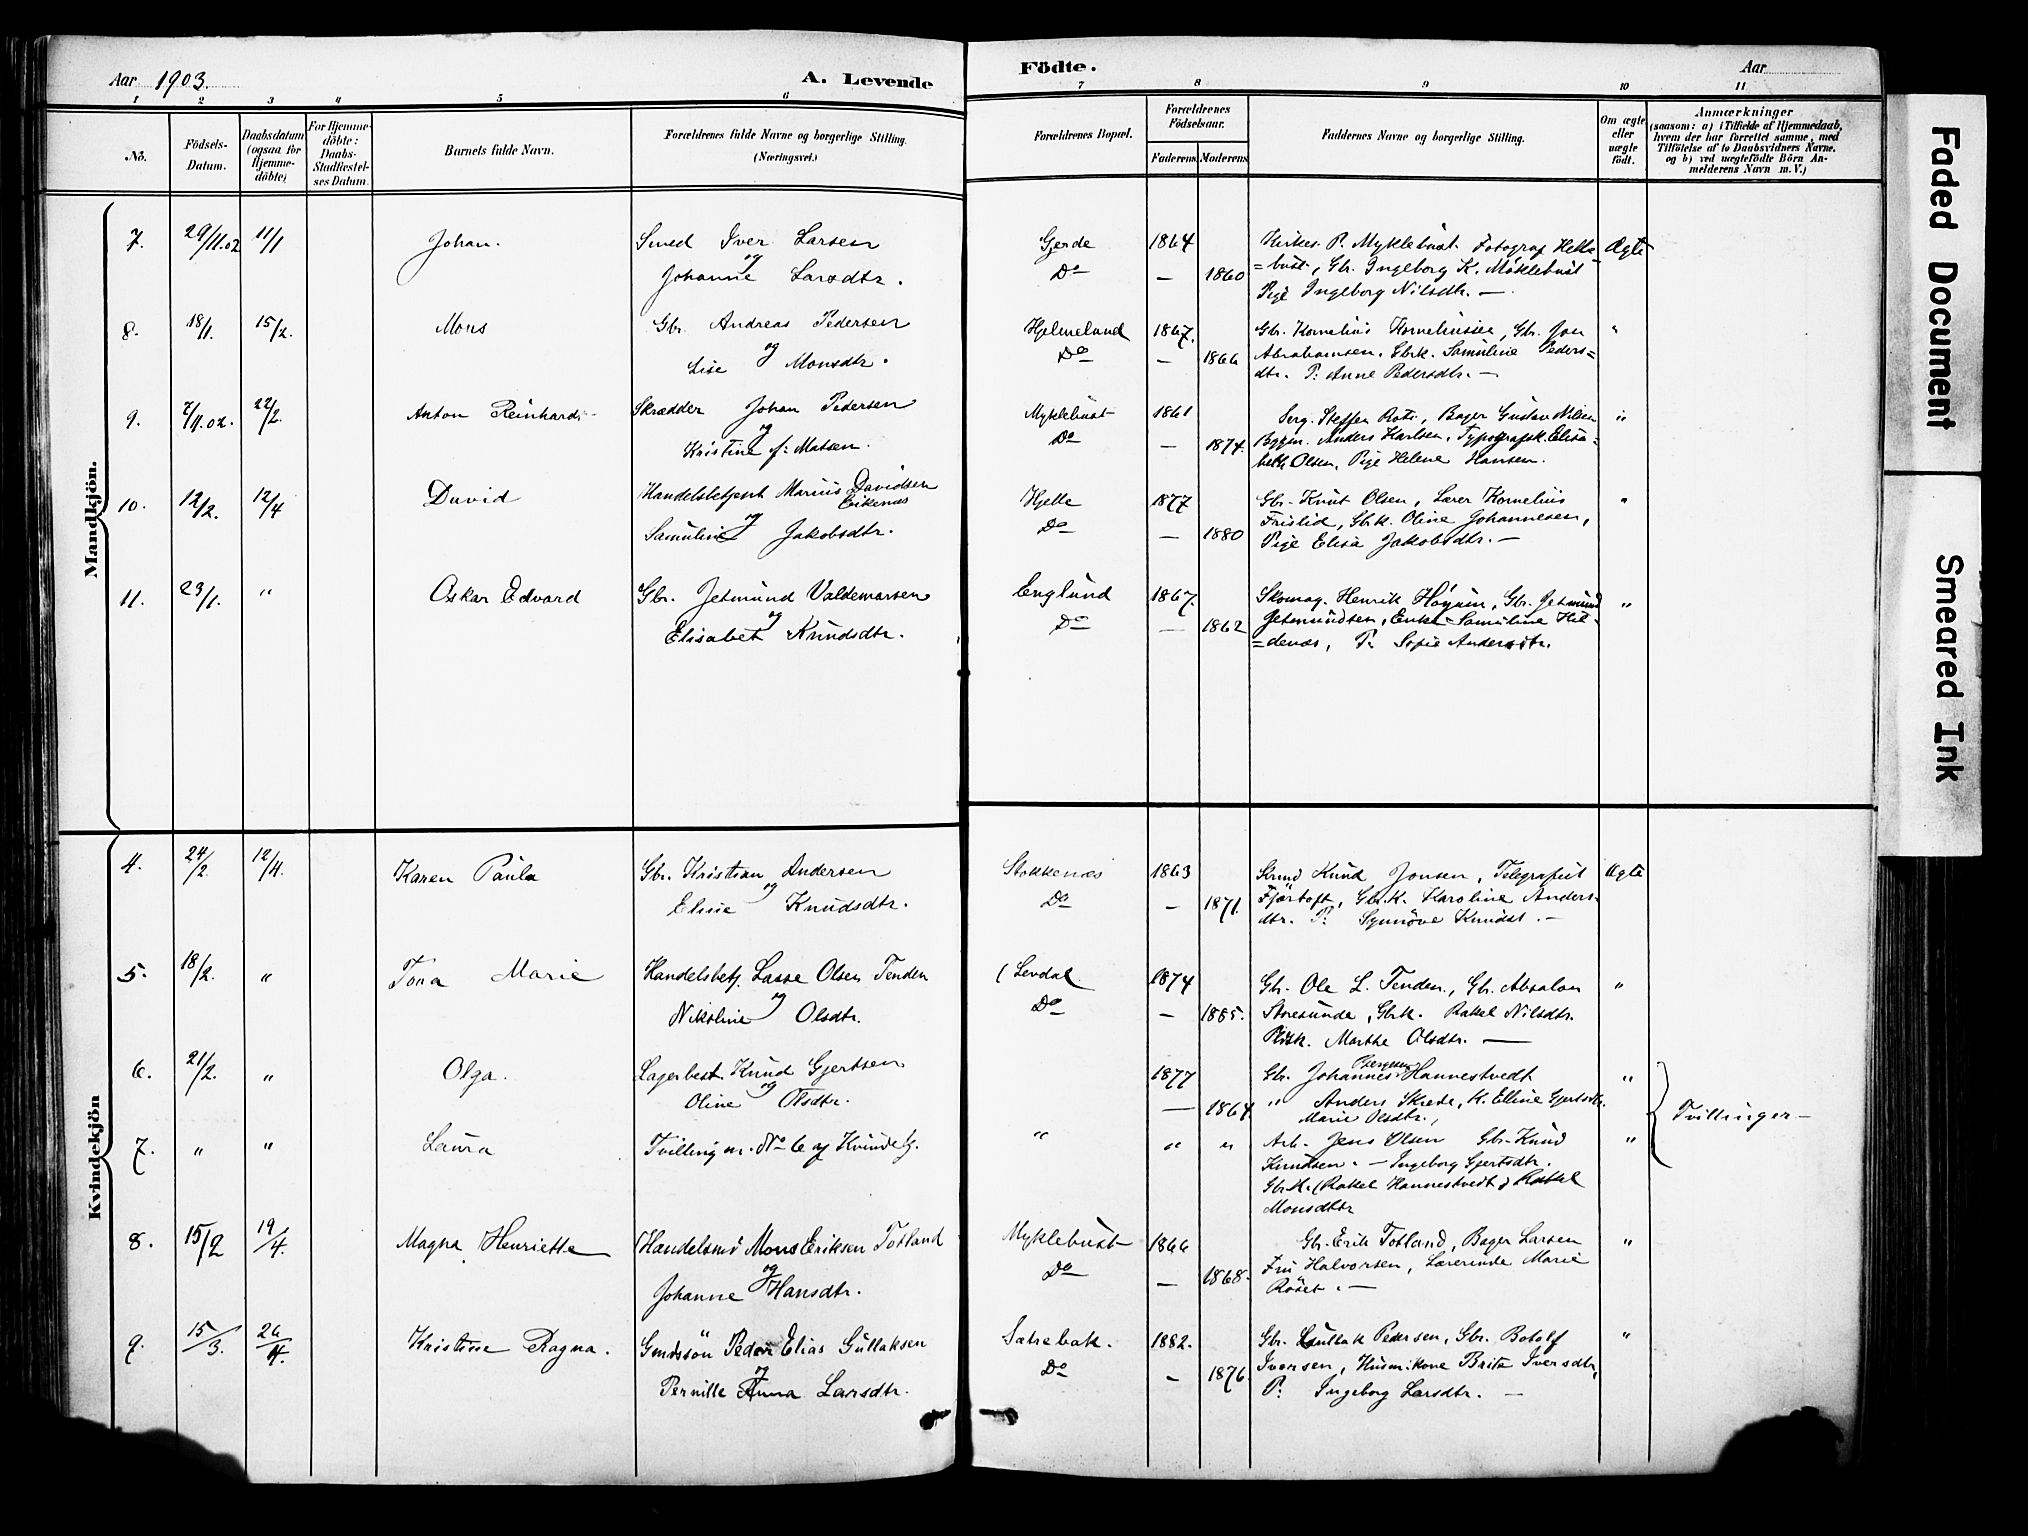 Aar 1903.
A. Levende
Födte.
Aar
1 2 3 4 5 6 7 8 9 10 11
No.
Födsels-Datum.
Daabsdatum (ogsaa for Hjemme-döbte)
For Hjemme-döbte: Daabs-Stadfæstel-ses Datum.
Barnets fulde Navn.
Forældrenes fulde Navne og borgerlige Stilling. (Næringsvei.)
Forældrenes Bopæl.
Forældrenes Födselsaar.
Faderens Moderens
Faddernes Navne og borgerlige Stilling.
Om ægte eller uægte födt.
Anmærkninger
(saasom: a) i Tilfælde af Hjemmedaab, hvem der har forrettet samme, med Tilföielse af to Daabsvidners Navne. og b) ved uægtefödte Börn An-melderens Navn m. V.)
Mandkjön.
7. 29/11.02 11/1 Johan. Smed Iver Larsen Gjerde 1864 Kirkes. P. Myklebust Fotograf Helle Ægte
og
Johanne Larsdtr. Do — 1860 =bust, Gbr. Ingeborg K. Möklebust
Pige Ingeborg Nilsdtr. —
8. 18/1. 15/2. Mons Gbr. Andreas Pedersen Hjelmeland 1867. Gbr. Kornelius Korneliussen, Gbr. Jon "
og
Lise Monsdtr. Do — 1866 Abrahamsen. Gbrk. Samuline Peders=
dtr. P: Anne Pedersdtr. —
9. 7/11.02. 22/2. Anton Reinhard Skrædder Johan Pedersen Myklebust 1861 Serg. Steffen Roti, Bager Gustav Nilsen "
og
Kristine f: Matsen. Do — 1874. Byggm. Anders Karlsen, Typografsk. Elisa=
beth Olsen, Pige Helene Hansen.
10. 12/2. 12/4 David Handelsbetjent Marius Davidsen Eikenæs Hjelle 1877 Gbr. Knut Olsen, Lærer Kornelius "
og
Samuline Jakobsdtr. Do — 1880 Frislid, Gbrk. Oline Johannesen,
Pige Elisa Jakobsdtr. —
11. 23/1. " Oskar Edvard Gbr. Jetmund Valdemarsen Englund 1867. Skomag. Henrik Höyum, Gbr. Jetmund "
og
Elisabet Knudsdtr. Do — 1862 Jetmundsen, Enke Samuline Hil=
=denæs, P. Sofie Andersdtr.
Kvindekjön
4. 24/2. 12/4. Karen Paula Gbr. Kristian Andersen Stokkenæs 1863 Strand Knud Jonsen, Telegrafist Ægte
og
Eline Knudsdtr. Do — 1871. Fjörtoft, Gbr.K. Karoline Anders=
dtr. P: Synnöve Knudsd. —
5. 18/2. " Tora Marie Handelsbetj. Lasse Olsen Tenden Levdal 1874 Gbr. Ole L. Tenden, Gbr. Absalon "
og
Nikoline Olsdtr. Do — 1885. Storesunde, Gbrk. Rakel Nilsdtr.
Marthe Olsdtr. —
6. 21/2. " Olga. Lagerbest. Knud Gjertsen 1877 Gbr. Johannes Hannestvedt "
og
Oline Olsdtr. — 1864 " Anders Skrede, K. Elline Gjertsdtr.
Marie Olsdtr.,
Tvillinger —
7. " " Laura Tvilling m. No 6 af Kvindekj. " " " Arb. Jens Olsen Gbr. Knud "
Knudsen. — Ingeborg Gjertsdtr.
Gbr.K. Rakel Hannestvedt, Rakel
Monsdtr
8. 15/2 19/4. Magna Henriette Handelsmd Mons Eriksen Totland Myklebust 1866 Gbr. Erik Totland, Bager Larsen "
og
Johanne Hansdtr. Do — 1868. Fru Halvorsen, Lærerinde Marie
Röset. —
9. 15/3. 26/4. Kristine Ragna. Gmdssön Peder Elias Gullaksen Sætrebak. 1882. Gbr. Gullak Pedersen, Gbr. Botolf "
og
Pernille Anna Larsdtr. Do — 1876. Iversen, Husmkone Brita Iversdtr,
P: Ingeborg Larsdtr. —
Faded Document
Smeared Ink